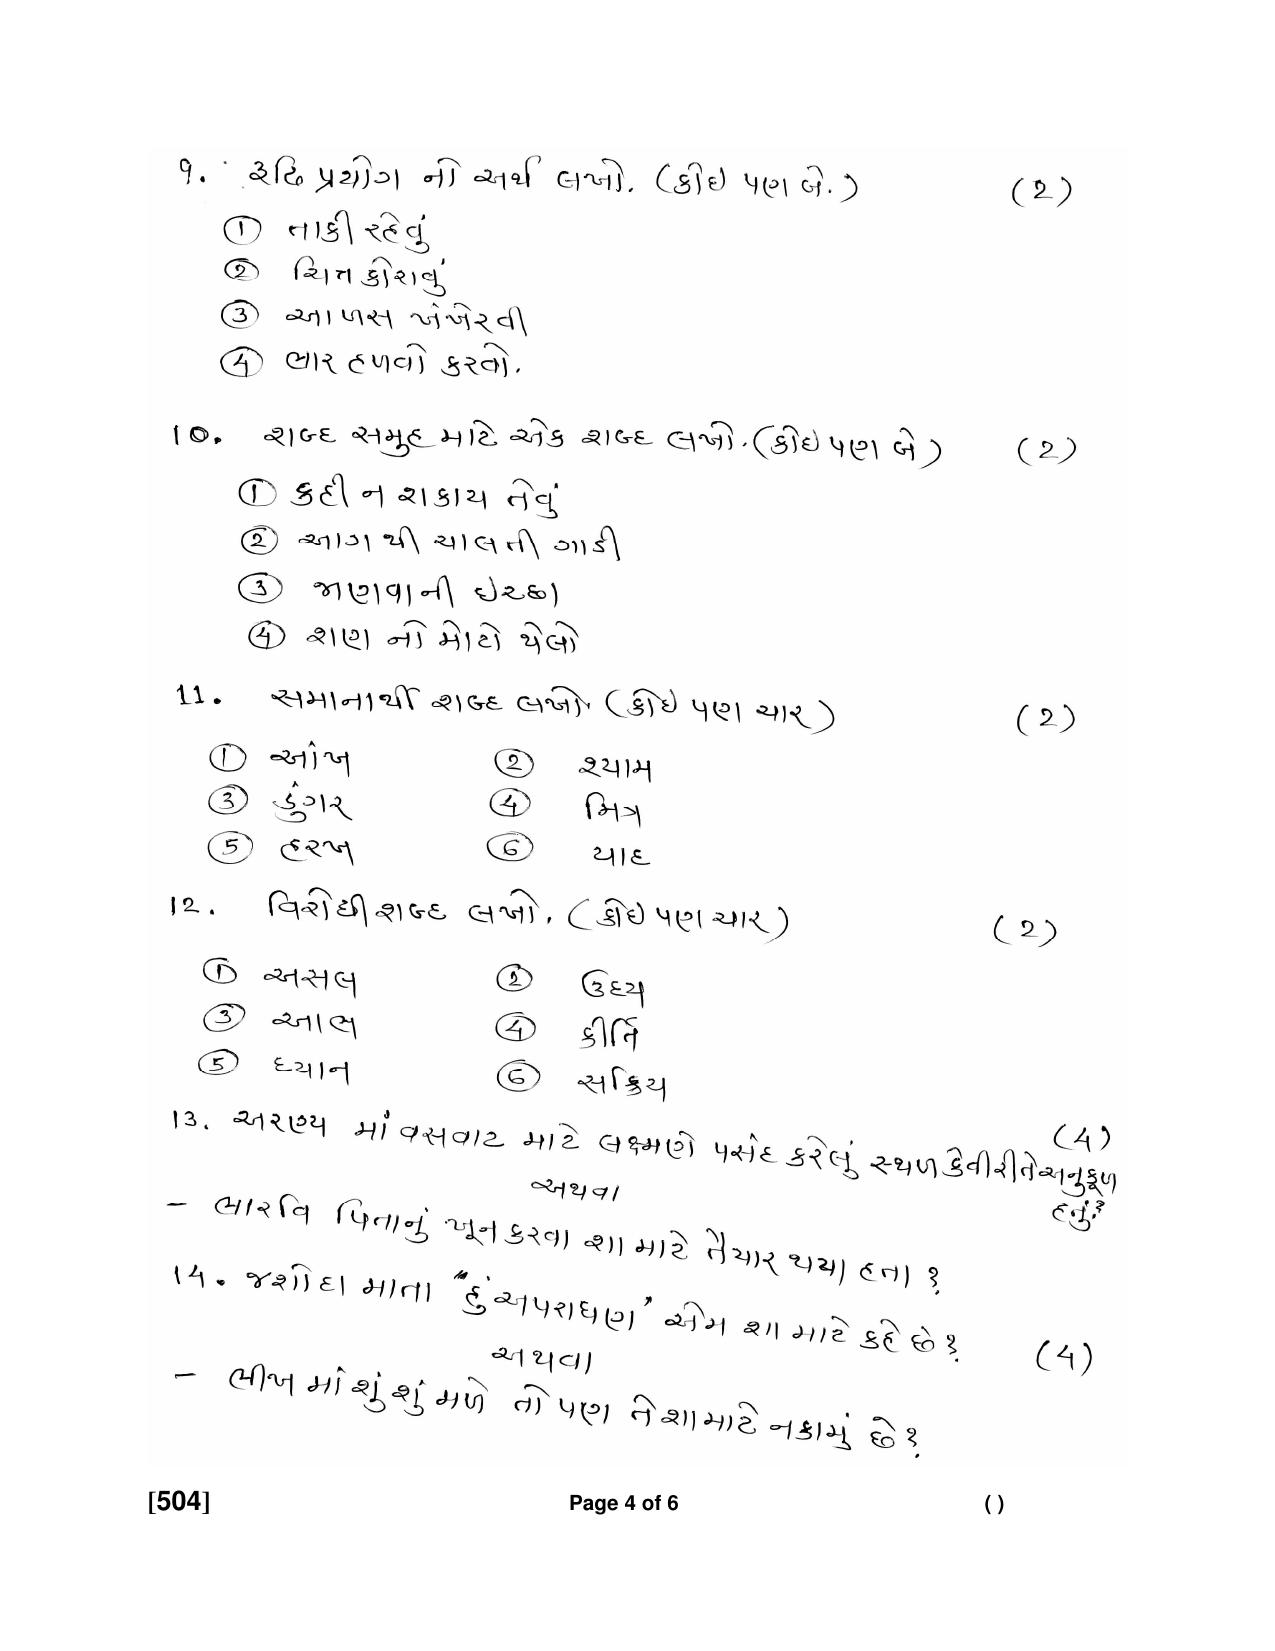 ૧. રૂઢિ પ્રયોગ નો અર્થ લખો. (કોઇ પણ બે.) (2)
① તાકી રહેવું
② ચિત્ત કોરાવું
③ આળસ ખંખેરવી
④ ભાર હળવો કરવો.
10. શબ્દ સમુહ માટે એક શબ્દ લખો. (કોઇ પણ બે) (2)
① કહી ન શકાય તેવું
② આગ થી ચાલતી ગાડી
③ જાણવાની ઇચ્છા
④ શણ નો મોટો થેલો
11. સમાનાર્થી શબ્દ લખો. (કોઇ પણ ચાર) (2)
① આંખ ② શ્યામ
③ ડુંગર ④ મિત્ર
⑤ હરખ ⑥ યાદ
12. વિરોધી શબ્દ લખો. (કોઇ પણ ચાર) (2)
① અસલ ② ઉદય
③ આભ ④ કીર્તિ
⑤ ધ્યાન ⑥ સક્રિય
13. અરણ્ય માં વસવાટ માટે લક્ષ્મણે પસંદ કરેલું સ્થળ કેવી રીતે અનુકૂળ હતું? (4)
અથવા
- ભારવિ પિતાનું ખૂન કરવા શા માટે તૈયાર થયા હતા ?
14. જશોદા માતા "હું અપરાધણ" એમ શા માટે કહે છે? (4)
અથવા
- ભીખ માં શું શું મળે તો પણ તે શા માટે નકામું છે?
[504] Page 4 of 6 ( )